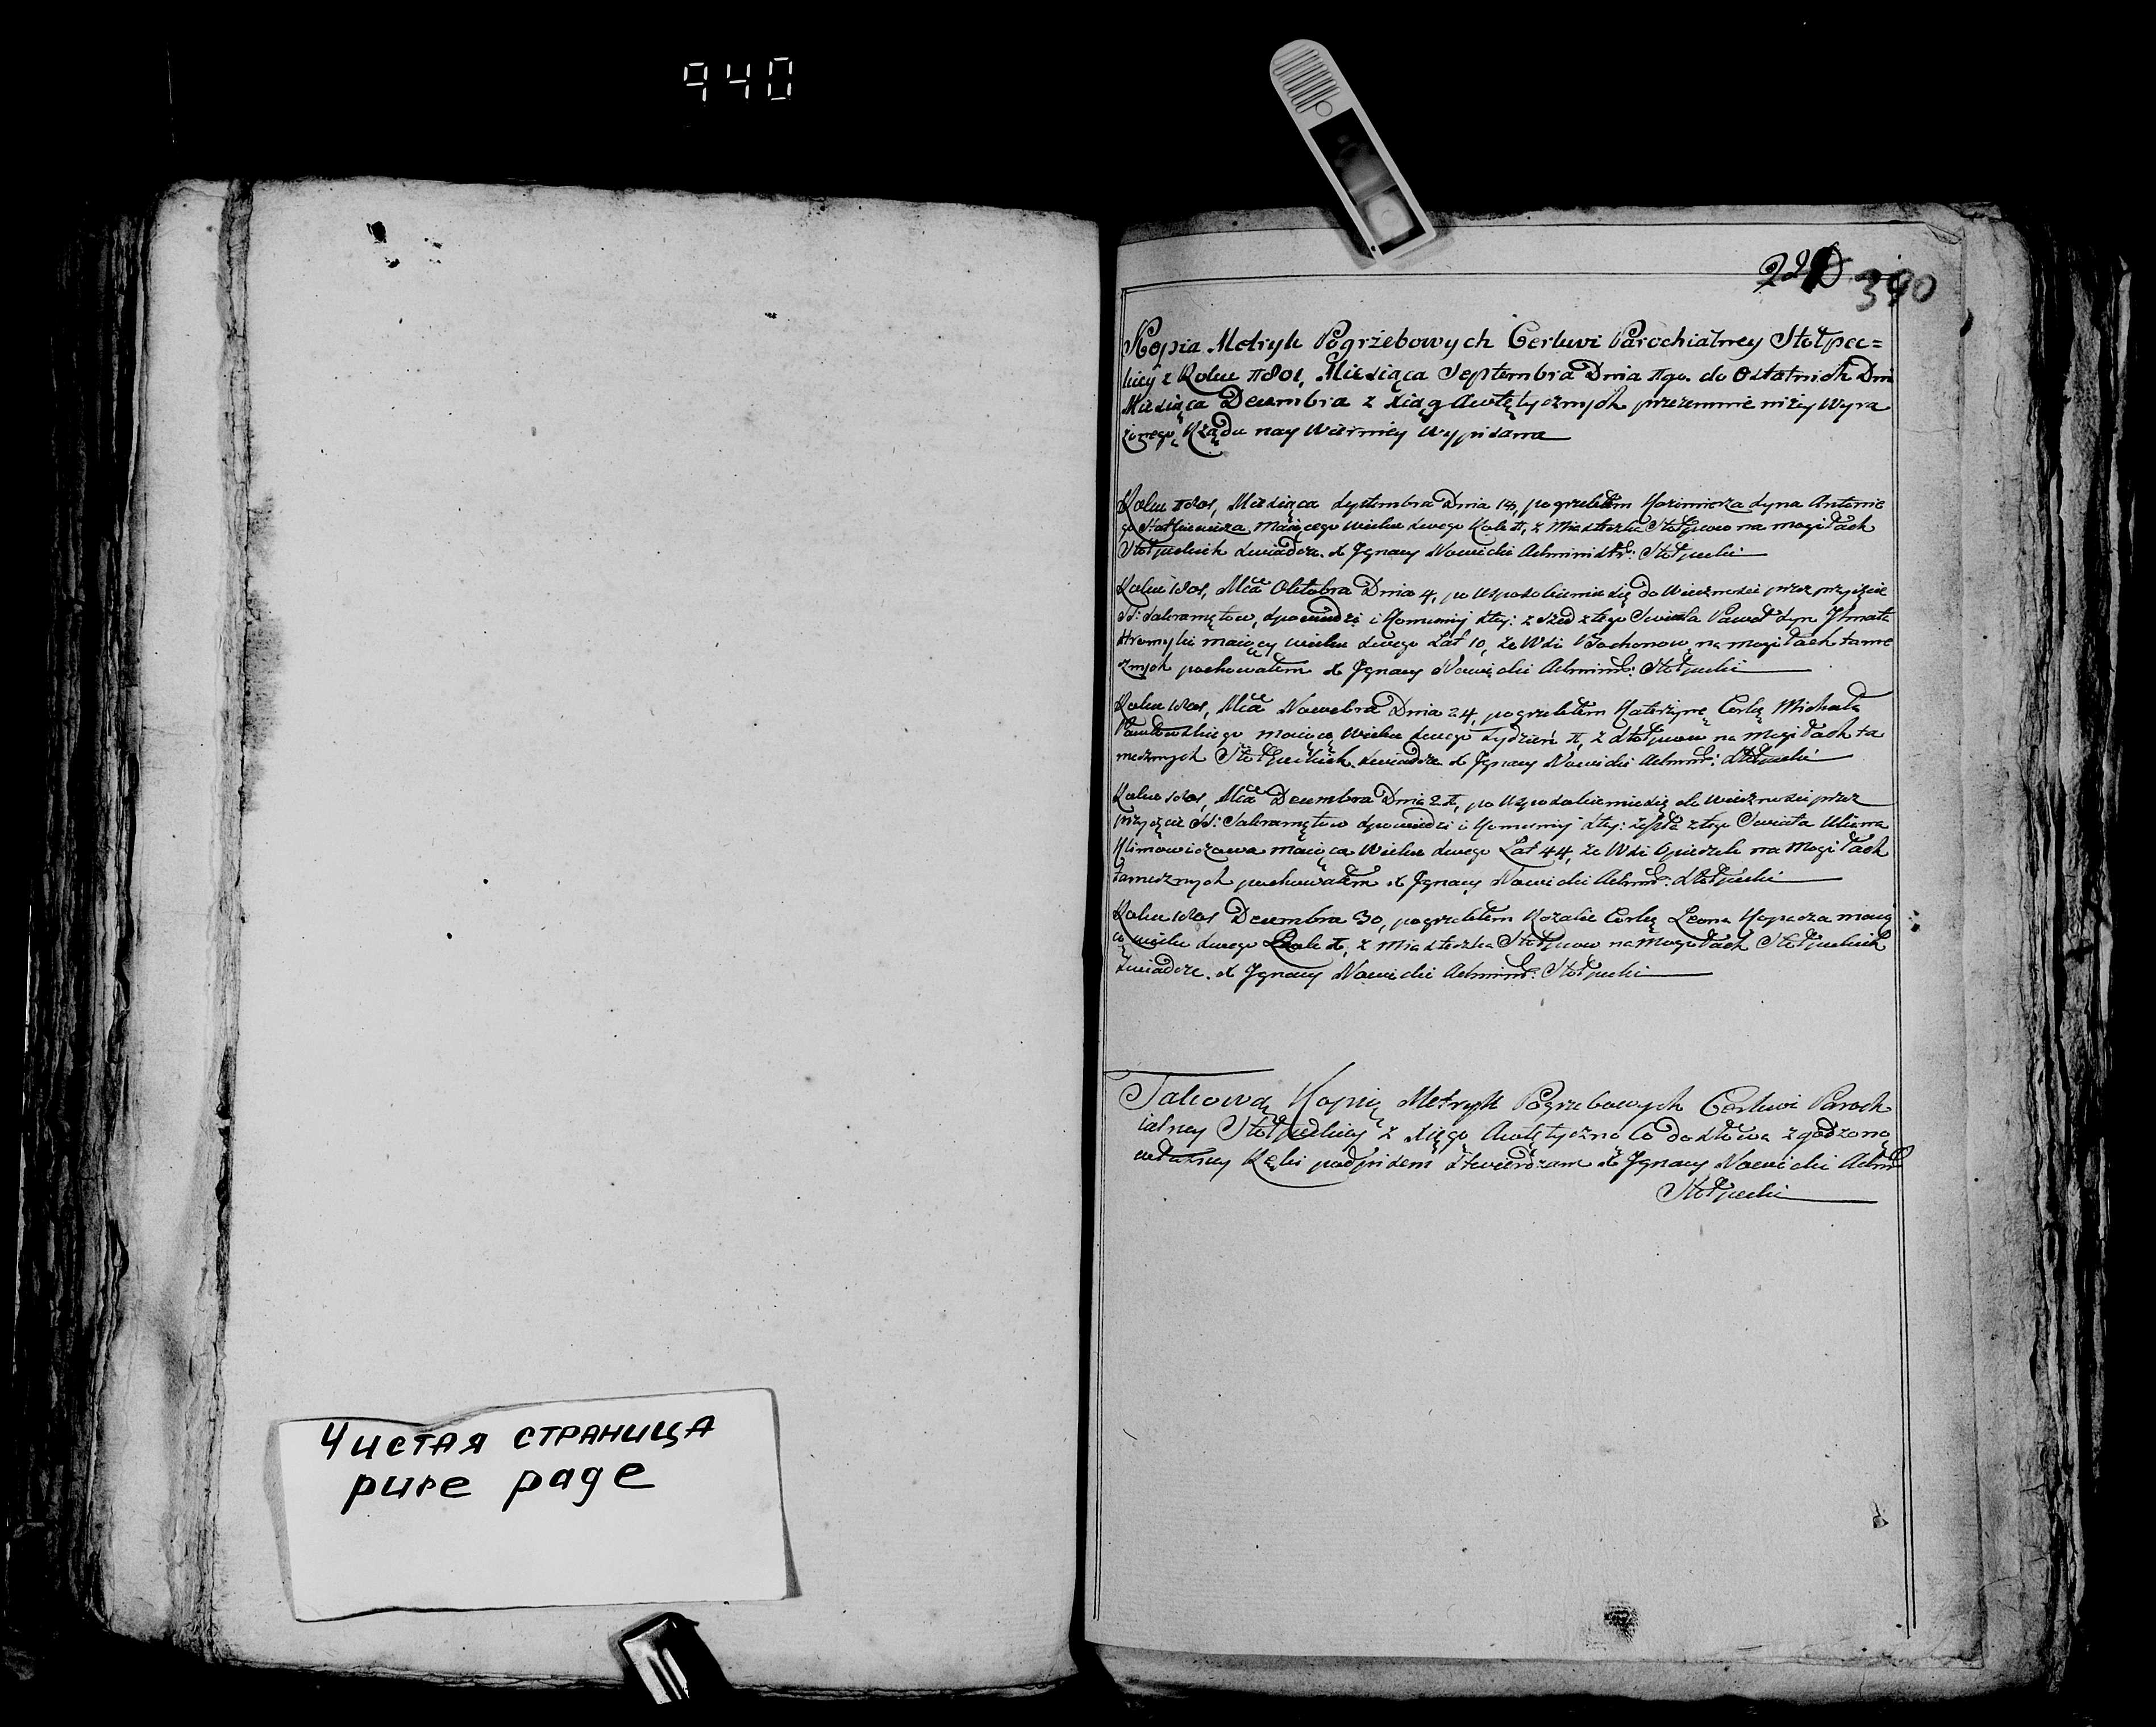 940
390
Kopia Metryk Pogrzebowych Cerkwi Parochialney Stołpec=
kiey z Roku 1801, Miesiąca Septembra Dnia 1go. do Ostatnich Dni
Miesiąca Decembra z xiąg Autętycznych przezemnie niżey wyra
żonego, Rządu nay wierniey wypisana
Roku 1801, Miesiąca Septembra Dnia 18, pogrzebłem Kazimierza syna Antonie
go maiącego wieku swego Rok 1, z Miasteczka Stołpcow na mogiłach
Stołpeckich swiadczę. X Jgnacy Nowicki Administr: Stołpecki
Roku 1801, Mca Oktobra Dnia 4, po usposobieniu się do wieczności przez przyięcie
SS: Sakramętow, spowiedzi i Komunij Stey: zszed z tego Swiata Paweł syn Jhnata
Hromyki maiący wieku swego Lat 10, ze Wsi na mogiłach tame
cznych pochowałem X Jgnacy Nowicki Admind: Stołpecki
Roku 1801, Mca Nowebra Dnia 24, pogrzebłem Katerzynę Corkę Michała
Pawłowskiego maiącą wieku swego tydzień 1, z Stołpcow na mogiłach ta
mecznych Stołpeckich swiadcze X Jgnacy Nowicki Admind: Stołpecki
Roku 1801, Mca Decembra Dnia 21, po usposobieniu się do wieczności przez
przyięcie SS: Sakramętow spowiedzi i Komunij Stey: zeszła z tego Swiata Uliana
Klimowiczowa maiąca wieku swego Lat 44, ze Wsi na mogiłach
tamecznych pochowałem X Jgnacy Nowicki Admind: Stołpecki
Roku 1801 Decembra 30, pogrzebłem Rozalie Corkę Leona Kopacza maią
cą wieku swego Rok 1, z Miasteczka Stołpcow na mogiłach Stołpeckich
swiadcze. X Jgnacy Nowicki Admind: Stołpecki
Takową Kopią Metryk Pogrzebowych Cerkwi Paroch
ialney Stołpeckiey z xięgą Autętyczną Co do słowa zgodzoną
własney Ręki podpisem stwierdzam X Jgnacy Nowicki Admind
Stołpecki
Чистая страница
pure page